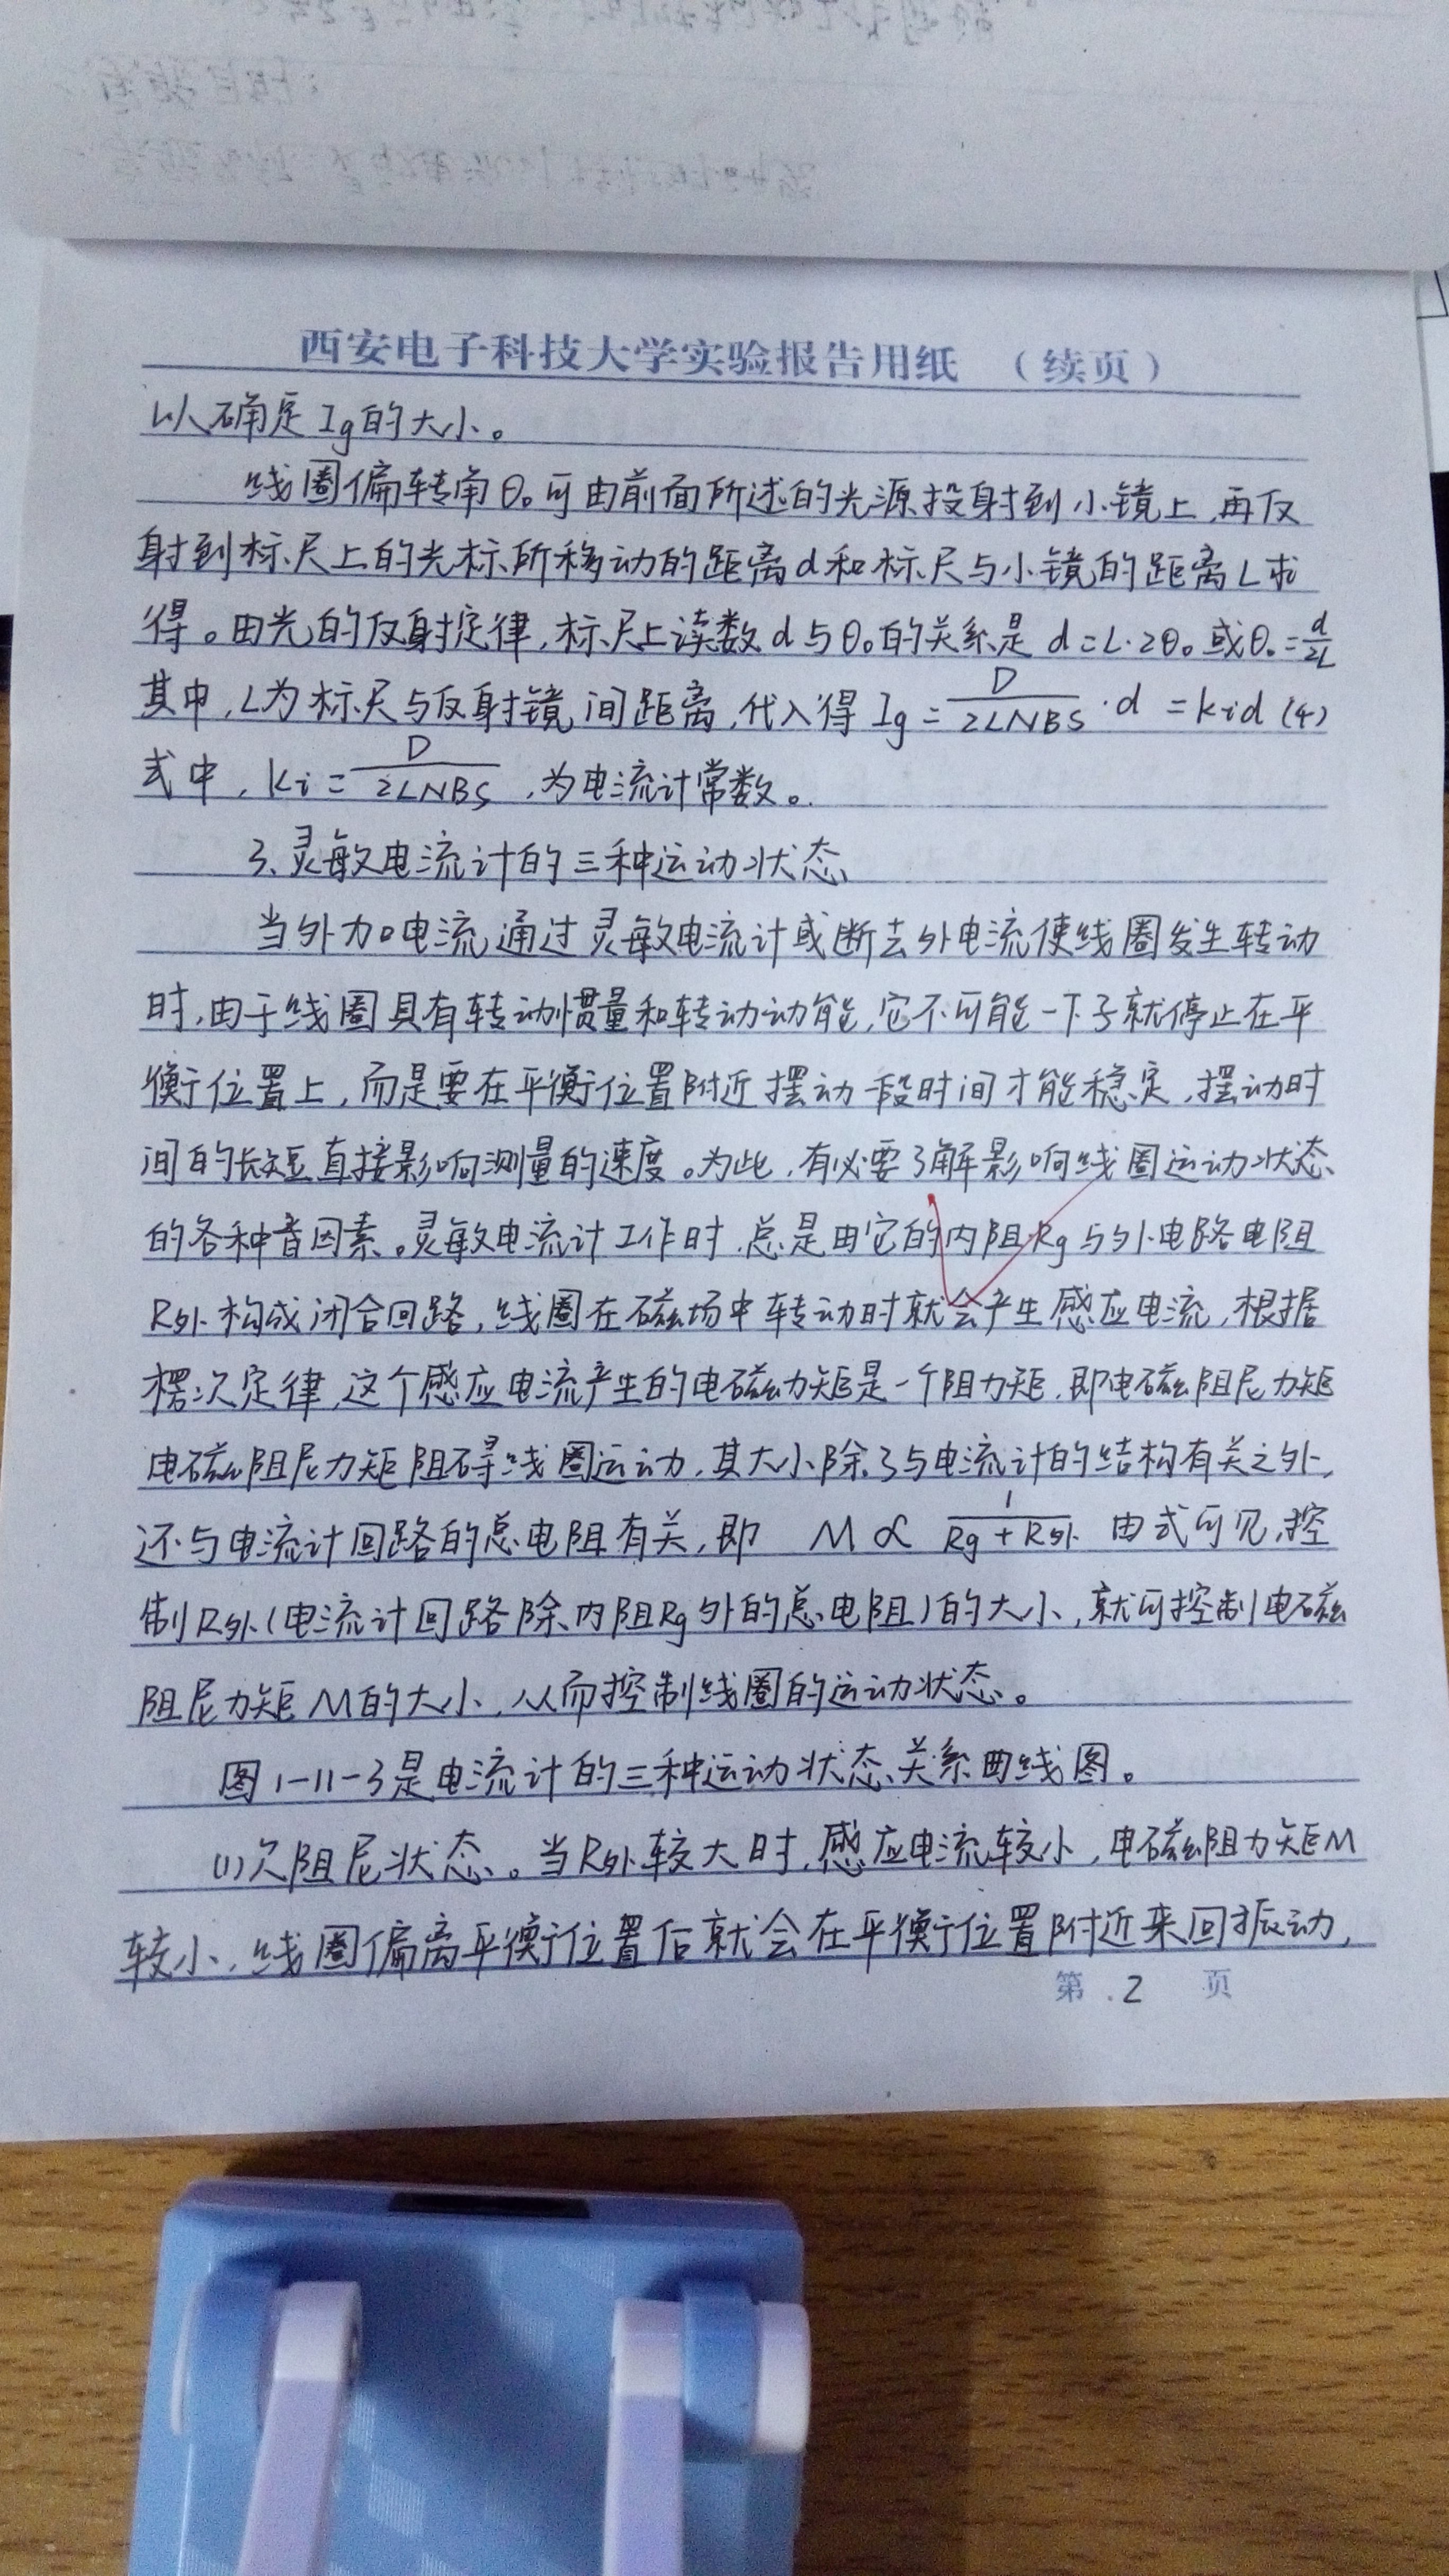 西安电子科技大学实验报告用纸 （续页）
以确定Ig的大小。
线圈偏转角θ₀可由前面所述的光源投射到小镜上,再反
射到标尺上的光标所移动的距离d和标尺与小镜的距离L求
得。由光的反射定律,标尺上读数d与θ₀的关系是 d=L·2θ₀ 或θ₀=d/2L
其中,L为标尺与反射镜间距离,代入得 Ig=D/2LNBS·d =kid (4)
式中,Ki=D/2LNBS,为电流计常数。
3、灵敏电流计的三种运动状态
当外加电流通过灵敏电流计或断去外电流使线圈发生转动
时,由于线圈具有转动惯量和转动动能,它不可能一下子就停止在平
衡位置上,而是要在平衡位置附近摆动一段时间才能稳定,摆动时
间的长短直接影响测量的速度。为此,有必要了解影响线圈运动状态
的各种音因素。灵敏电流计工作时,总是由它的内阻Rg与外电路电阻
R外构成闭合回路,线圈在磁场中转动时就会产生感应电流,根据
楞次定律,这个感应电流产生的电磁力矩是一个阻力矩,即电磁阻尼力矩
电磁阻尼力矩阻碍线圈运动,其大小除了与电流计的结构有关之外,
还与电流计回路的总电阻有关,即 M∝1/Rg+R外 由式可见,控
制R外(电流计回路除内阻Rg外的总电阻)的大小,就可控制电磁
阻尼力矩M的大小,从而控制线圈的运动状态。
图1-11-3是电流计的三种运动状态关系曲线图。
(1)欠阻尼状态。当R外较大时,感应电流较小,电磁阻力矩M
较小,线圈偏离平衡位置后就会在平衡位置附近来回振动,
第.2 页